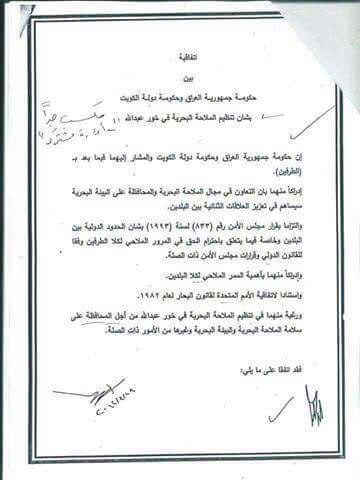 اتفاقية
بين
حكومة جمهورية العراق وحكومة دولة الكويت
بشان تنظيم الملاحة البحرية في خور عبدالله
إن حكومة جمهورية العراق وحكومة دولة الكويت والمشار إليهما فيما بعد بـ
(الطرفين).
إدراكاً منهما بان التعاون في مجال الملاحة البحرية والمحافظة على البيئة البحرية
سيساهم في تعزيز العلاقات الثنائية بين البلدين.
والتزاما بقرار مجلس الأمن رقم (٨٣٣) لسنة (١٩٩٣) بشان الحدود الدولية بين
البلدين وخاصة فيما يتعلق باحترام الحق في المرور الملاحي لكلا الطرفين وفقا
للقانون الدولي وقرارات مجلس الأمن ذات الصلة.
وإدراكاً منهما بأهمية الممر الملاحي لكلا البلدين.
واستنادا لاتفاقية الأمم المتحدة لقانون البحار لعام ١٩٨٢.
ورغبة منهما في تنظيم الملاحة البحرية في خور عبدالله من أجل المحافظة على
سلامة الملاحة البحرية والبيئة البحرية وغيرها من الأمور ذات الصلة.
فقد اتفقا على ما يلي: